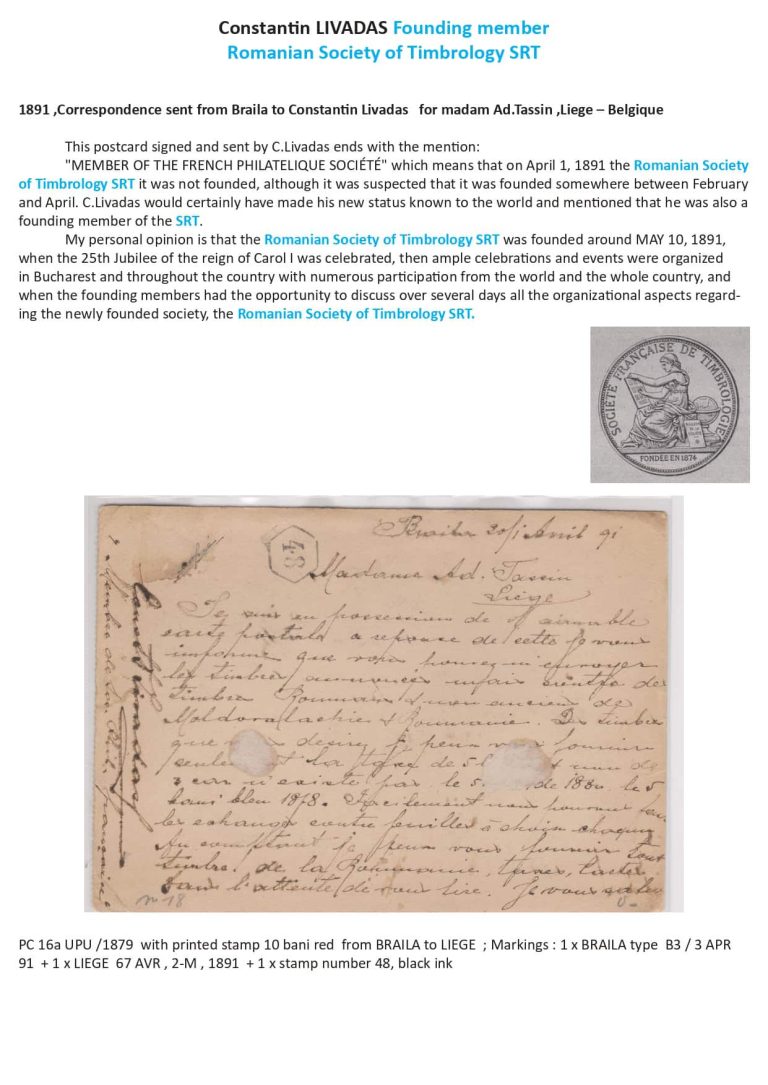 Constantin LIVADAS Founding member
Romanian Society of Timbrology SRT
1891 ,Correspondence sent from Braila to Constantin Livadas for madam Ad.Tassin ,Liege – Belgique
This postcard signed and sent by C.Livadas ends with the mention:
"MEMBER OF THE FRENCH PHILATELIQUE SOCIÉTÉ" which means that on April 1, 1891 the Romanian Society
of Timbrology SRT it was not founded, although it was suspected that it was founded somewhere between February
and April. C.Livadas would certainly have made his new status known to the world and mentioned that he was also a
founding member of the SRT.
My personal opinion is that the Romanian Society of Timbrology SRT was founded around MAY 10, 1891,
when the 25th Jubilee of the reign of Carol I was celebrated, then ample celebrations and events were organized
in Bucharest and throughout the country with numerous participation from the world and the whole country, and
when the founding members had the opportunity to discuss over several days all the organizational aspects regard-
ing the newly founded society, the Romanian Society of Timbrology SRT.
SOCIÉTÉ FRANÇAISE DE TIMBROLOGIE
FONDÉE EN 1874
Braila Avril 91
48
Madame Ad. Tassin
Liège
Je suis en possession de
carte postale a reponse de cette je vous
informe que vous
les timbres
timbres Roumain
Moldovalachie & Roumanie. Des timbres
que desirez je peux vous fournir
de 5
le 5 de 1880 le 5
bani bleu 1878. Facilement nous pouvons
les echanger contre feuilles à choix
Au comptant je peux vous fournir tout
timbres de la Roumanie, taxes,
Dans l'attente de vous lire. Je vous salue
Membre de Soc. Phil. française
PC 16a UPU /1879 with printed stamp 10 bani red from BRAILA to LIEGE ; Markings : 1 x BRAILA type B3 / 3 APR
91 + 1 x LIEGE 67 AVR , 2-M , 1891 + 1 x stamp number 48, black ink